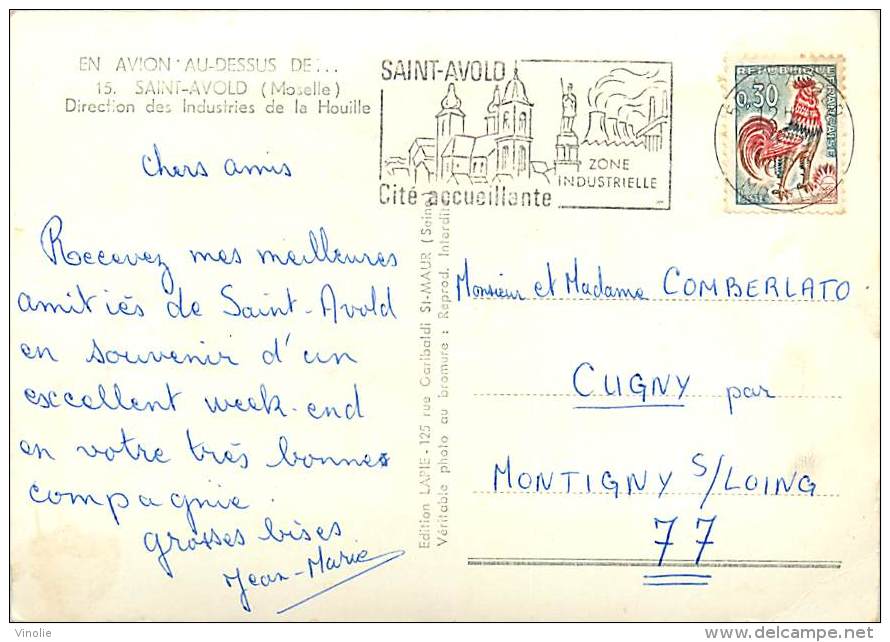 EN AVION AU-DESSUS DE...
15. SAINT-AVOLD (Moselle)
Direction des Industries de la Houille
SAINT-AVOLD
ZONE
INDUSTRIELLE
Cité accueillante
REPUBLIQUE FRANÇAISE
0,30
Chers amis
Recevez mes meilleures
amitiés de Saint-Avold
en souvenir d'un
excellent week-end
en votre très bonne
compagnie.
grosses bises
Jean-Marie
Edition LAPIE - 125 rue Garibaldi ST-MAUR (Seine)
Véritable photo au bromure : Reprod. Interdit
Monsieur et Madame COMBERLATO
CUGNY par
MONTIGNY S/LOING
77
Vinolie
delcampe.net